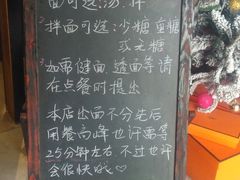 面可选:汤、拌
拌面可选:沙糖 蛋糖
或无糖
加带健面、透面等请
在点餐时提出
本店出面不分先后
用餐高峰也许需等
25分钟左右.不过也许
会很快哦♡